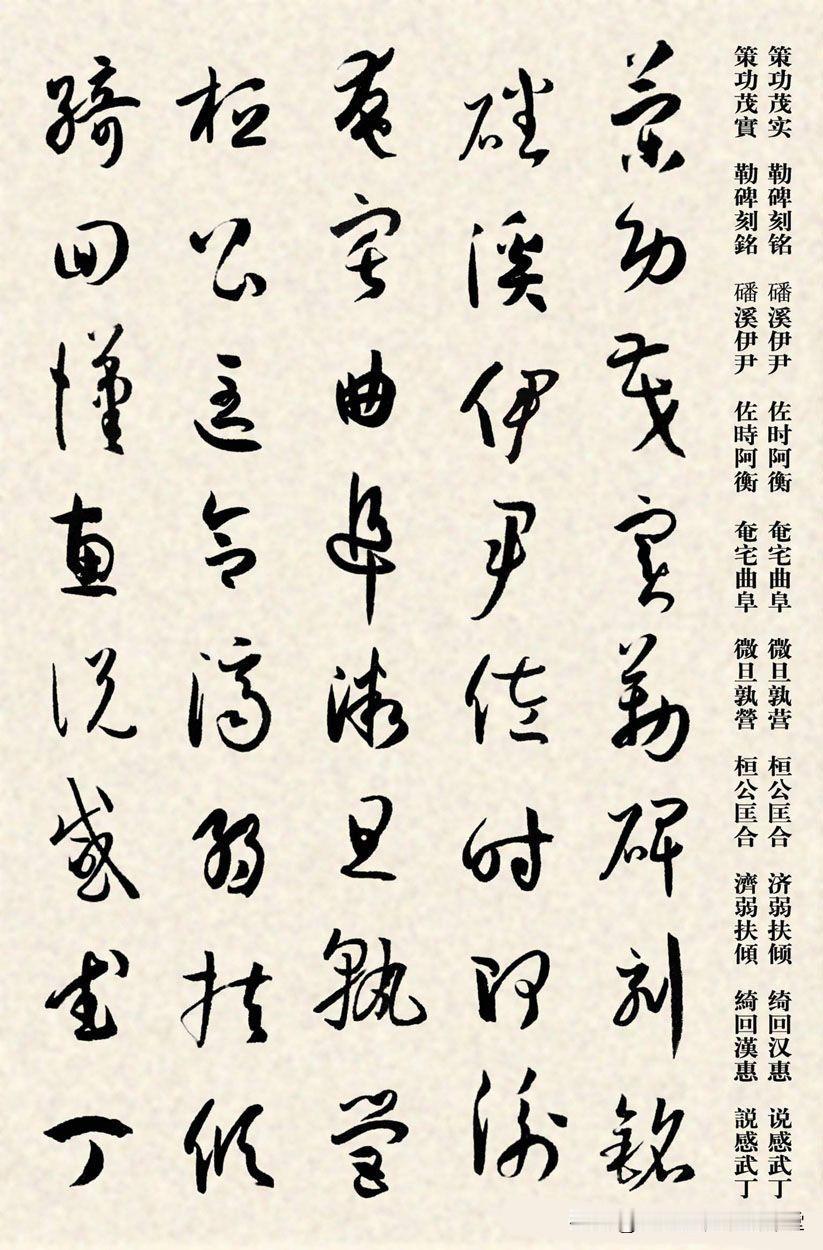 策功茂实 勒碑刻铭 磻溪伊尹 佐时阿衡 奄宅曲阜 微旦孰营 桓公匡合 济弱扶倾 绮回汉惠 说感武丁
策功茂實 勒碑刻銘 磻溪伊尹 佐時阿衡 奄宅曲阜 微旦孰營 桓公匡合 濟弱扶傾 綺回漢惠 説感武丁
策功茂實勒碑刻銘
磻溪伊尹佐時阿衡
奄宅曲阜微旦孰營
桓公匡合濟弱扶傾
綺回漢惠説感武丁